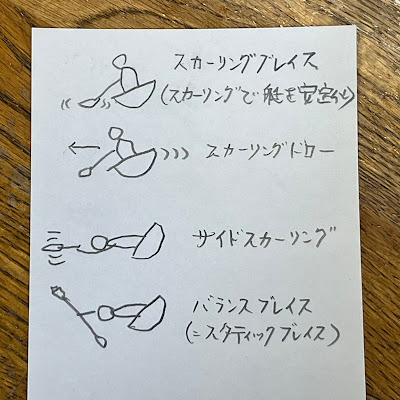 スカーリングブレイス
(スカーリングで艇を安定化)
スカーリングドロー
サイドスカーリング
バランスブレイス
(=スタティックブレイス)